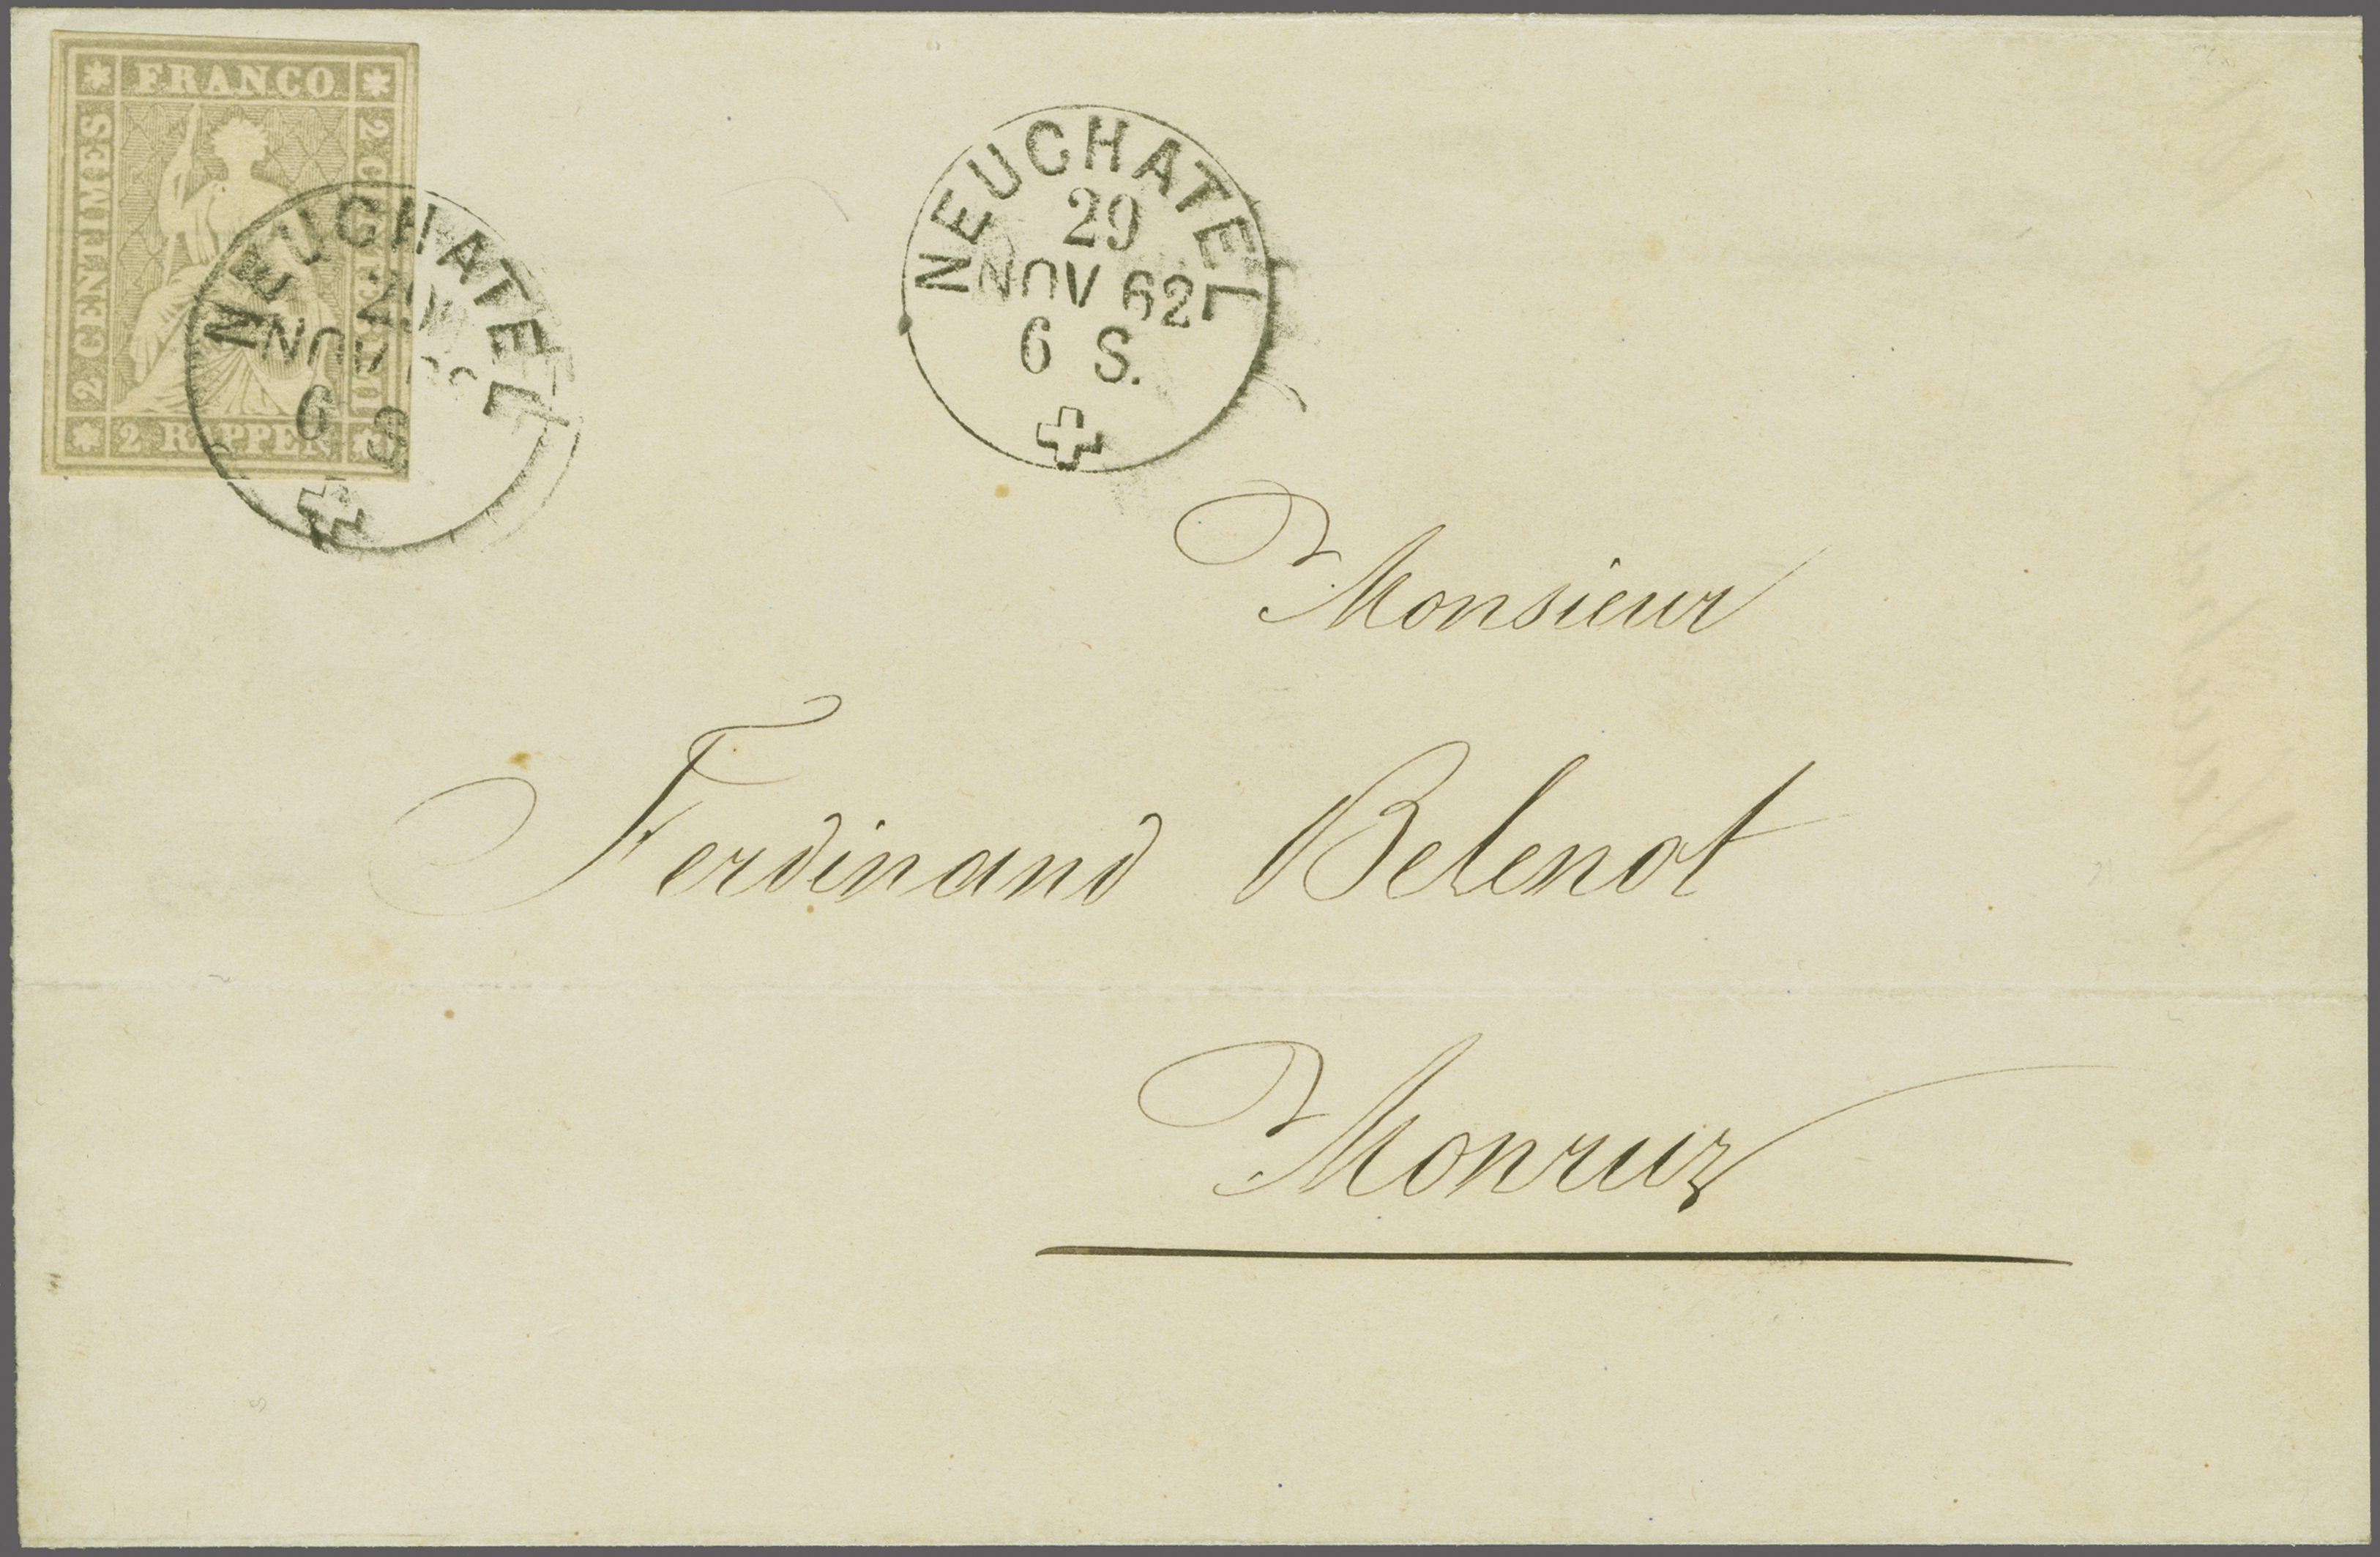 FRANCO
2 CENTIMES
2 RAPPEN
NEUCHATEL
29
NOV
6 S
NEUCHATEL
29
NOV 62
6 S.
Monsieur
Ferdinand Belenot
Monruz